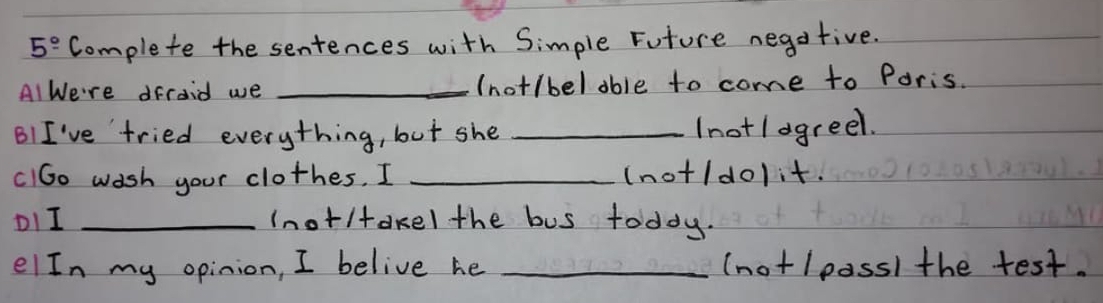 5º Complete the sentences with Simple Future negative.
A) We're afraid we ________ (not/be) able to come to Paris.
B) I've tried everything, but she ________ (not/agree).
C) Go wash your clothes. I ________ (not/do) it.
D) I ________ (not/take) the bus today.
e) In my opinion, I belive he ________ (not/pass) the test.